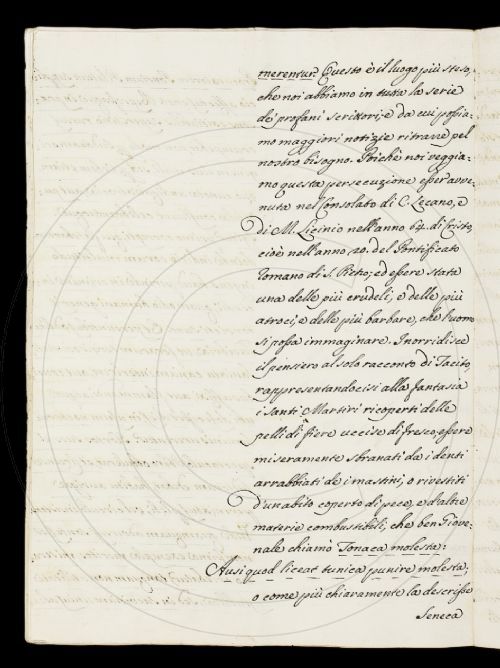 merentur. Questo è il luogo più steso,
che noi abbiamo in tutta la serie
de' profani scrittori; e da cui possia-
mo maggiori notizie ritrarre pel
nostro bisogno. Poichè noi veggia-
mo questa persecuzione esser avve-
nuta nel Consolato di C. Lecano, e
di M. Licinio nell'anno 64. di Cristo,
cioè nell'anno 20. del Pontificato
Romano di S. Pietro; ed essere stata
una delle più crudeli, e delle più
atroci, e delle più barbare, che l'uomo
si possa immaginare. Inorridisce
il pensiero al solo racconto di Tacito,
rappresentandocisi alla fantasia
i Santi Martiri ricoperti delle
pelli di fiere uccise di fresco, essere
miseramente sbranati da i denti
arrabbiati de i mastini; o rivestiti
d'un abito coperto di pece, e d'altre
materie combustibili, che ben Giove-
nale chiamò Tonaca molesta:
Ausi quod liceat tunica punire molesta;
o come più chiaramente la descrisse
Seneca